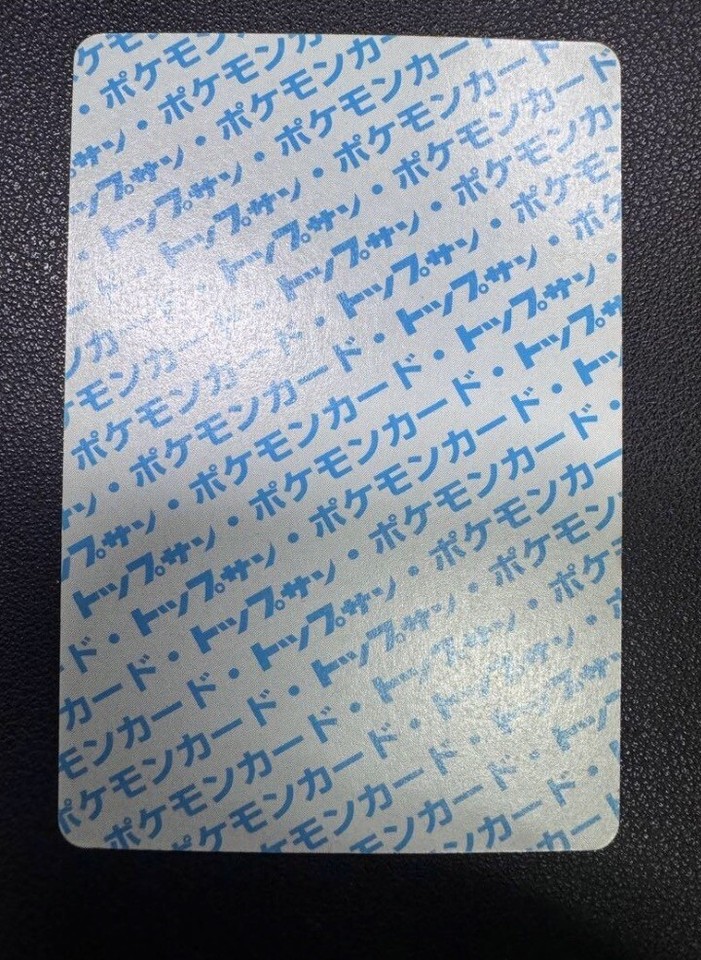 ケモ
・ポケモン
サン・ポケモンカー
ップサン・ポケモンカ
・トップサン・ポケモンカード
・トップサン・ポケモンカード
トップサン・ポケモンカード
ンカ トップサン・ポケモンカー
ケモンカード・トップサン・ポケモンカ
ポケモンカード・トップサン・ポケ
ポケモンカード・トップサン・
・ポケモンカード・トップサン
ン・ポケモンカード・トッ
サン・ポケモンカード・
トップサン・ポケモンカード
・トップサン・ポケモンカー
ド・トップサン・ポケモンカ
カード・トップサン・ポケモ
モンカード・トップサン・ポ
ポケモンカード・トップサン・
ポケモンカード・トップサン
ケモンカード・トップ
モンカード・
カード